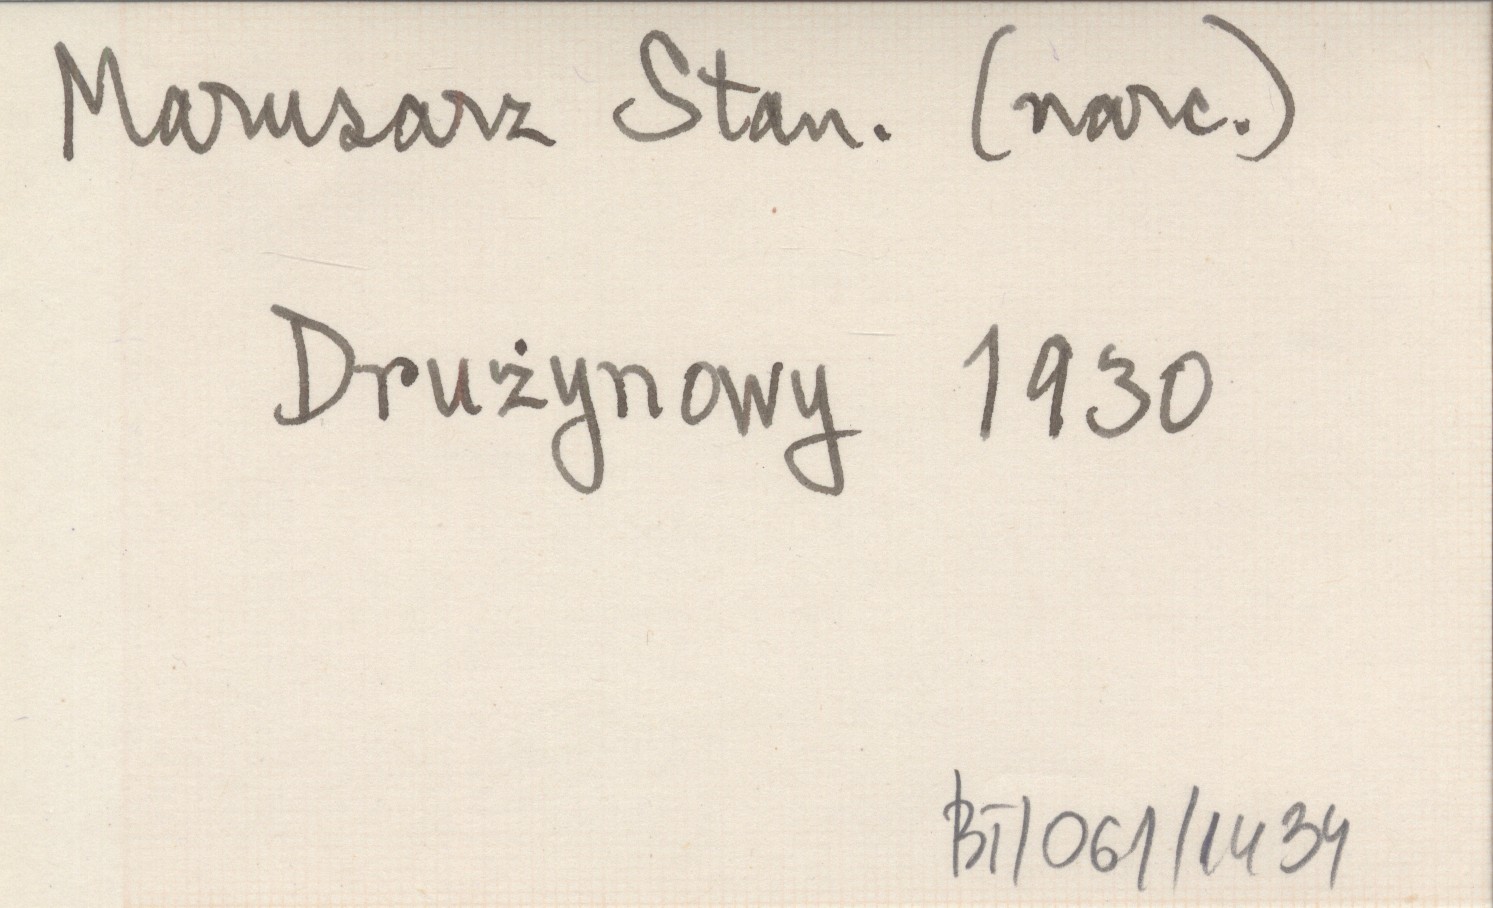 Marusarz Stan. (narc.)
Drużynowy 1930
BT/061/1434